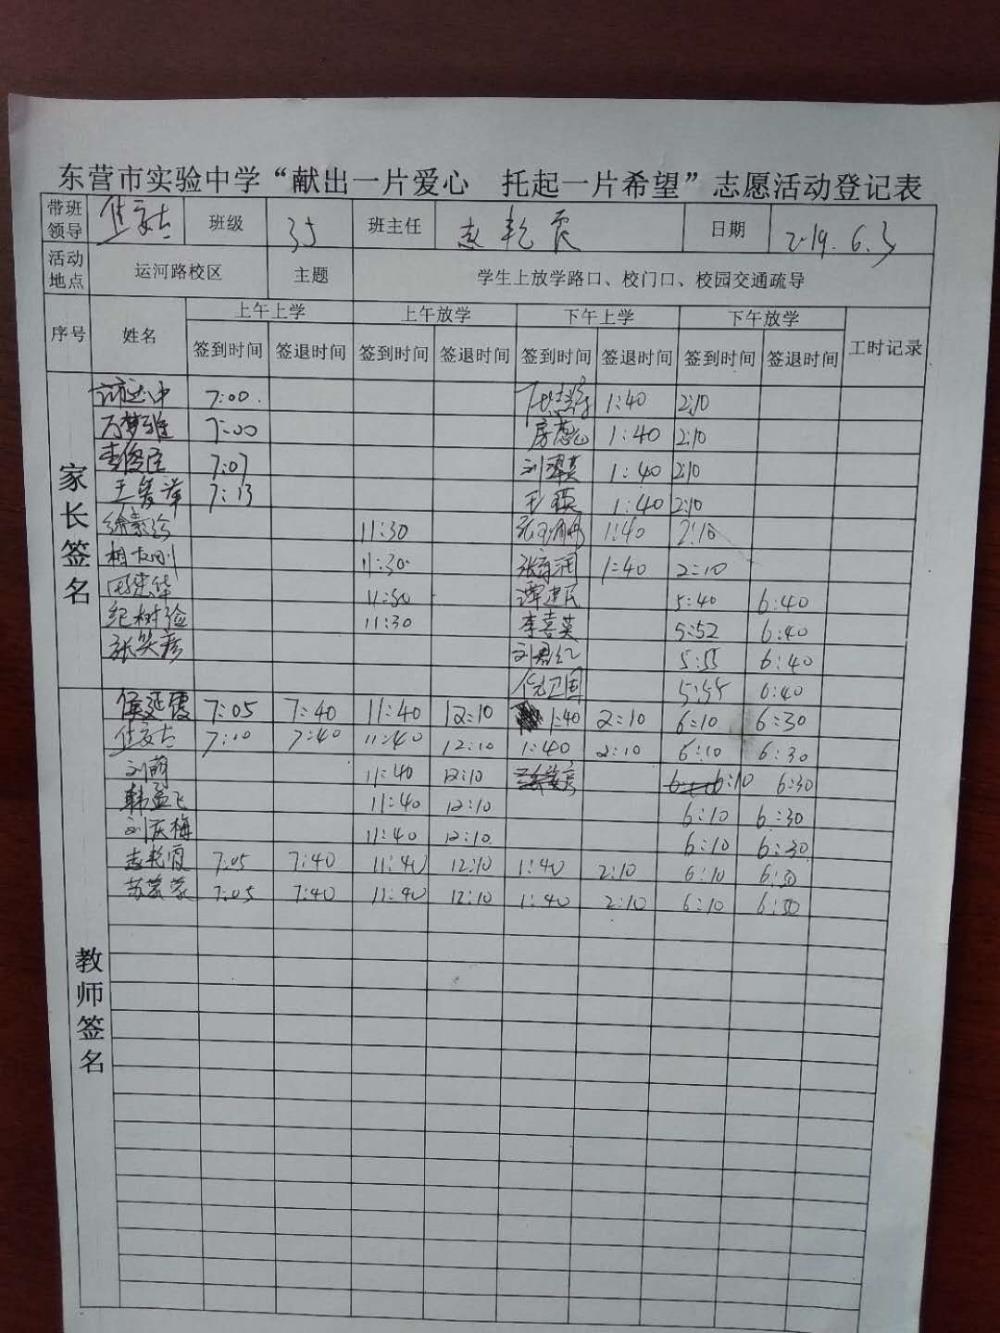 东营市实验中学“献出一片爱心 托起一片希望”志愿活动登记表
带班领导 班级 35 班主任 日期 2019.6.3
活动地点 运河路校区 主题 学生上放学路口、校门口、校园交通疏导
序号 姓名 上午上学 上午放学 下午上学 下午放学 工时记录
签到时间 签退时间 签到时间 签退时间 签到时间 签退时间 签到时间 签退时间
家长签名
7:00 1:40 2:10
7:00 1:40 2:10
7:07 1:40 2:10
7:13 1:40 2:10
11:30 1:40 2:10
11:30 1:40 2:10
11:30 谭建民 5:40 6:40
11:30 李喜英 5:52 6:40
张笑彦 5:55 6:40
倪卫国 5:55 6:40
教师签名
侯延霞 7:05 7:40 11:40 12:10 1:40 2:10 6:10 6:30
7:10 7:40 11:40 12:10 1:40 2:10 6:10 6:30
刘萌 11:40 12:10 6:10 6:30
韩孟飞 11:40 12:10 6:10 6:30
刘庆梅 11:40 12:10 6:10 6:30
7:05 7:40 11:40 12:10 1:40 2:10 6:10 6:30
7:05 7:40 11:40 12:10 1:40 2:10 6:10 6:30